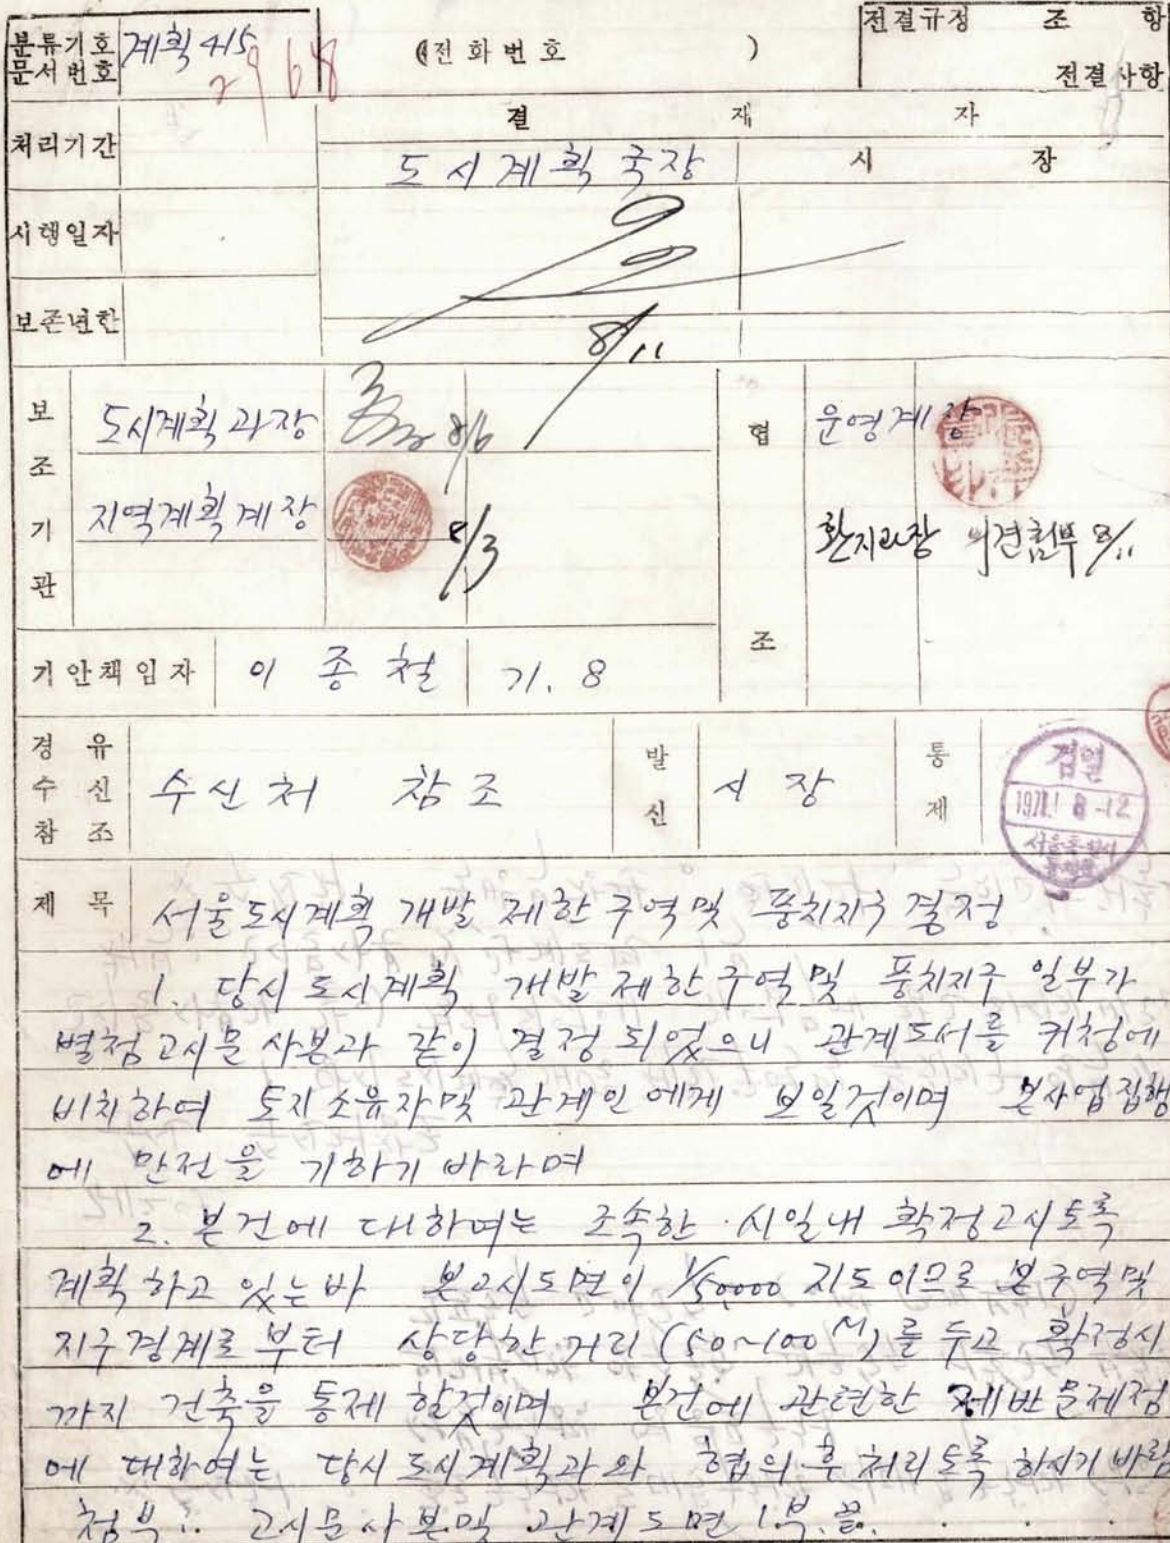 분류기호 문서번호 계획 415 2968 (전화번호 ) 전결규정 조 항
전결사항
처리기간 결 재 자
도시계획국장 시 장
시행일자
보존년한
8/11
보조기관 도시계획과장 8/6 협조 운영계장
지역계획계장 8/3 환지과장 의견첨부 8/11
기안책임자 이종철 71. 8
경유 수신 참조 수신처 참조 발신 시장 통제
검열
1971. 8 -12
서울특별시
제목 서울도시계획 개발제한구역및 풍치지구 결정
1. 당시 도시계획 개발제한구역및 풍치지구 일부가
별첨고시문 사본과 같이 결정 되었으니 관계도서를 귀청에
비치하여 토지소유자및 관계인에게 보일것이며 본사업집행
에 만전을 기하기 바라며
2. 본건에 대하여는 조속한 시일내 확정고시토록
계획하고 있는바 본고시도면이 1/50000 지도이므로 본구역및
지구경계로 부터 상당한 거리 (50~100M)를 두고 확정시
까지 건축을 통제 할것이며 본건에 관련한 제반문제점
에 대하여는 당시 도시계획과와 협의후 처리토록 하시기 바람
첨부: 고시문사본및 관계도면 1부. 끝.